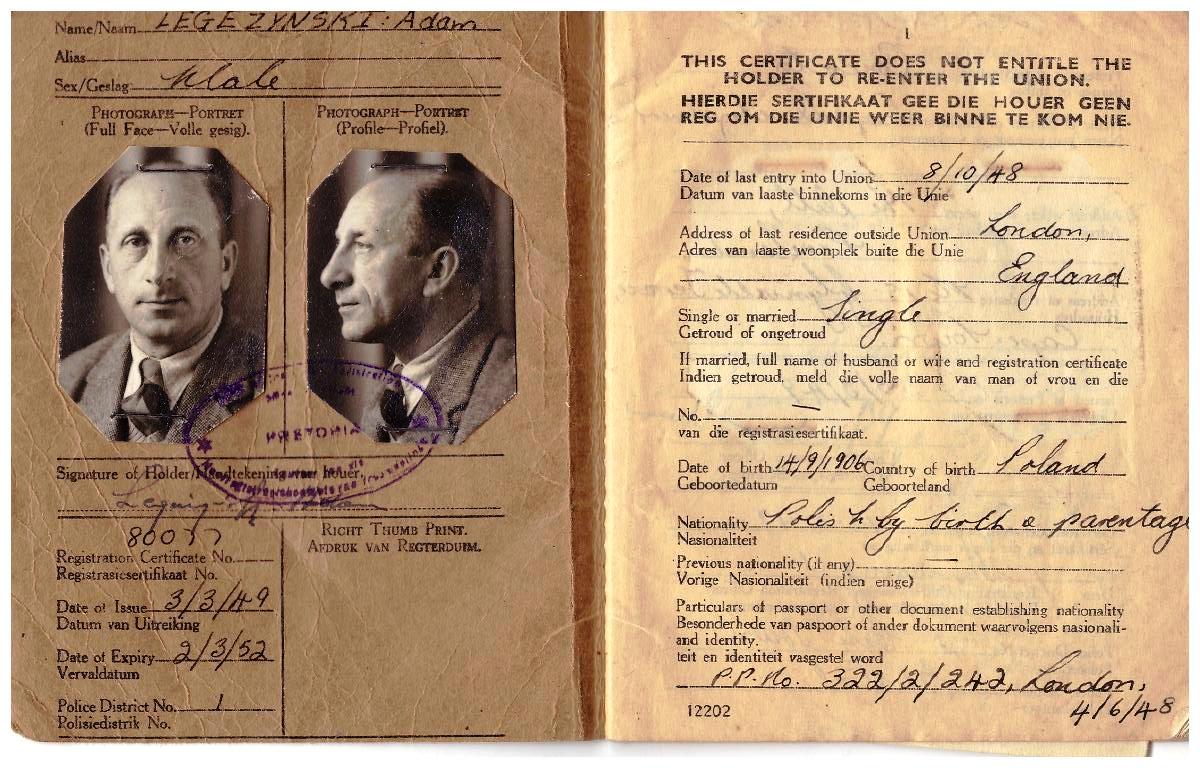 Name/Naam LEGEZYNSKI: Adam
Alias
Sex/Geslag Male
PHOTOGRAPH—PORTRET
(Full Face—Volle gesig).
PHOTOGRAPH—PORTRET
(Profile—Profiel).
PRETORIA
Signature of Holder/Handtekening van houer.
80057
Registration Certificate No.
Registrasiesertifikaat No.
Date of Issue 3/3/49
Datum van Uitreiking
Date of Expiry 2/3/52
Vervaldatum
Police District No. 1
Polisiedistrik No.
RIGHT THUMB PRINT.
AFDRUK VAN REGTERDUIM.
1
THIS CERTIFICATE DOES NOT ENTITLE THE
HOLDER TO RE-ENTER THE UNION.
HIERDIE SERTIFIKAAT GEE DIE HOUER GEEN
REG OM DIE UNIE WEER BINNE TE KOM NIE.
Date of last entry into Union 8/10/48
Datum van laaste binnekoms in die Unie
Address of last residence outside Union London,
Adres van laaste woonplek buite die Unie
England
Single or married Single
Getroud of ongetroud
If married, full name of husband or wife and registration certificate
Indien getroud, meld die volle naam van man of vrou en die
No. —
van die registrasiesertifikaat.
Date of birth 14/9/1906 Country of birth Poland
Geboortedatum Geboorteland
Nationality Polish by birth & parentage
Nasionaliteit
Previous nationality (if any) —
Vorige Nasionaliteit (indien enige)
Particulars of passport or other document establishing nationality
Besonderhede van paspoort of ander dokument waarvolgens nasionali-
and identity.
teit en identiteit vasgestel word
P.P. No. 322/2/242, London,
12202
4/6/48